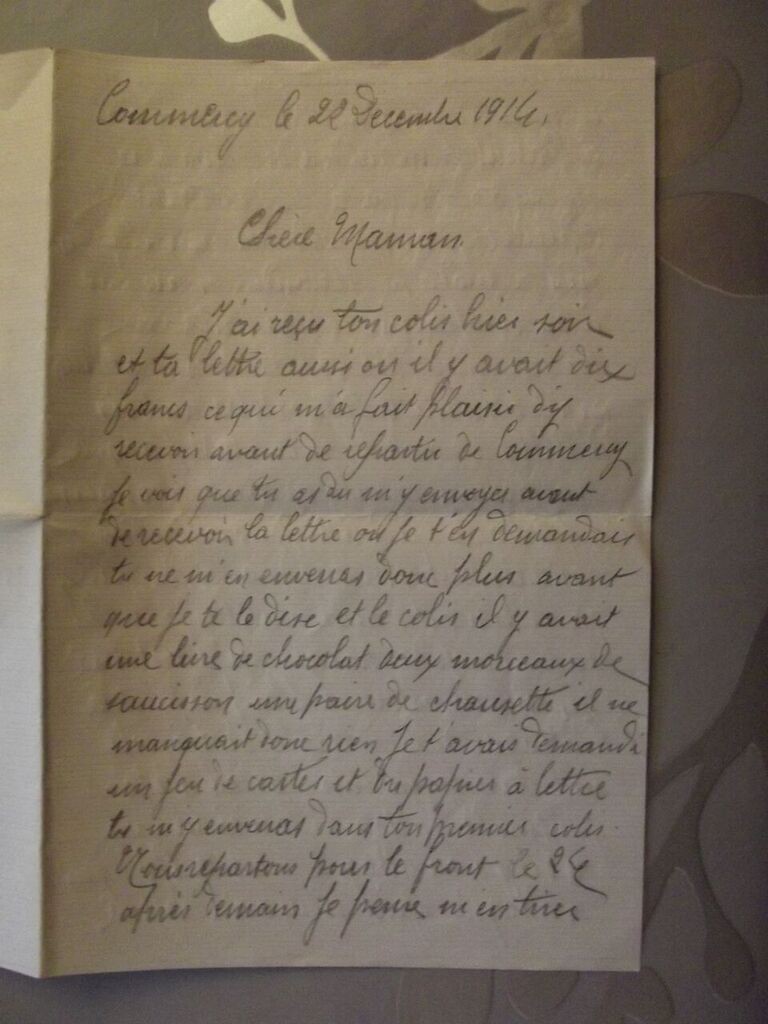 Commercy le 22 Decembre 1914.
Chère Maman
J'ai reçu ton colis hier soir
et ta lettre aussi ou il y avait dix
francs ce qui m'a fait plaisir d'y
recevoir avant de repartir de Commercy
Je vois que tu as du m'y envoyer avant
de recevoir la lettre ou je t'en demandais
tu ne m'en enveras donc plus avant
que je te le dise et le colis il y avait
une livre de chocolat deux morceaux de
saucisson une paire de chausette il ne
manquait donc rien Je t'avais demandé
un jeu de cartes et du papier à lettre
tu m'y enveras dans ton premier colis.
Nous repartons pour le front le 24
après demain Je pense m'en tirer